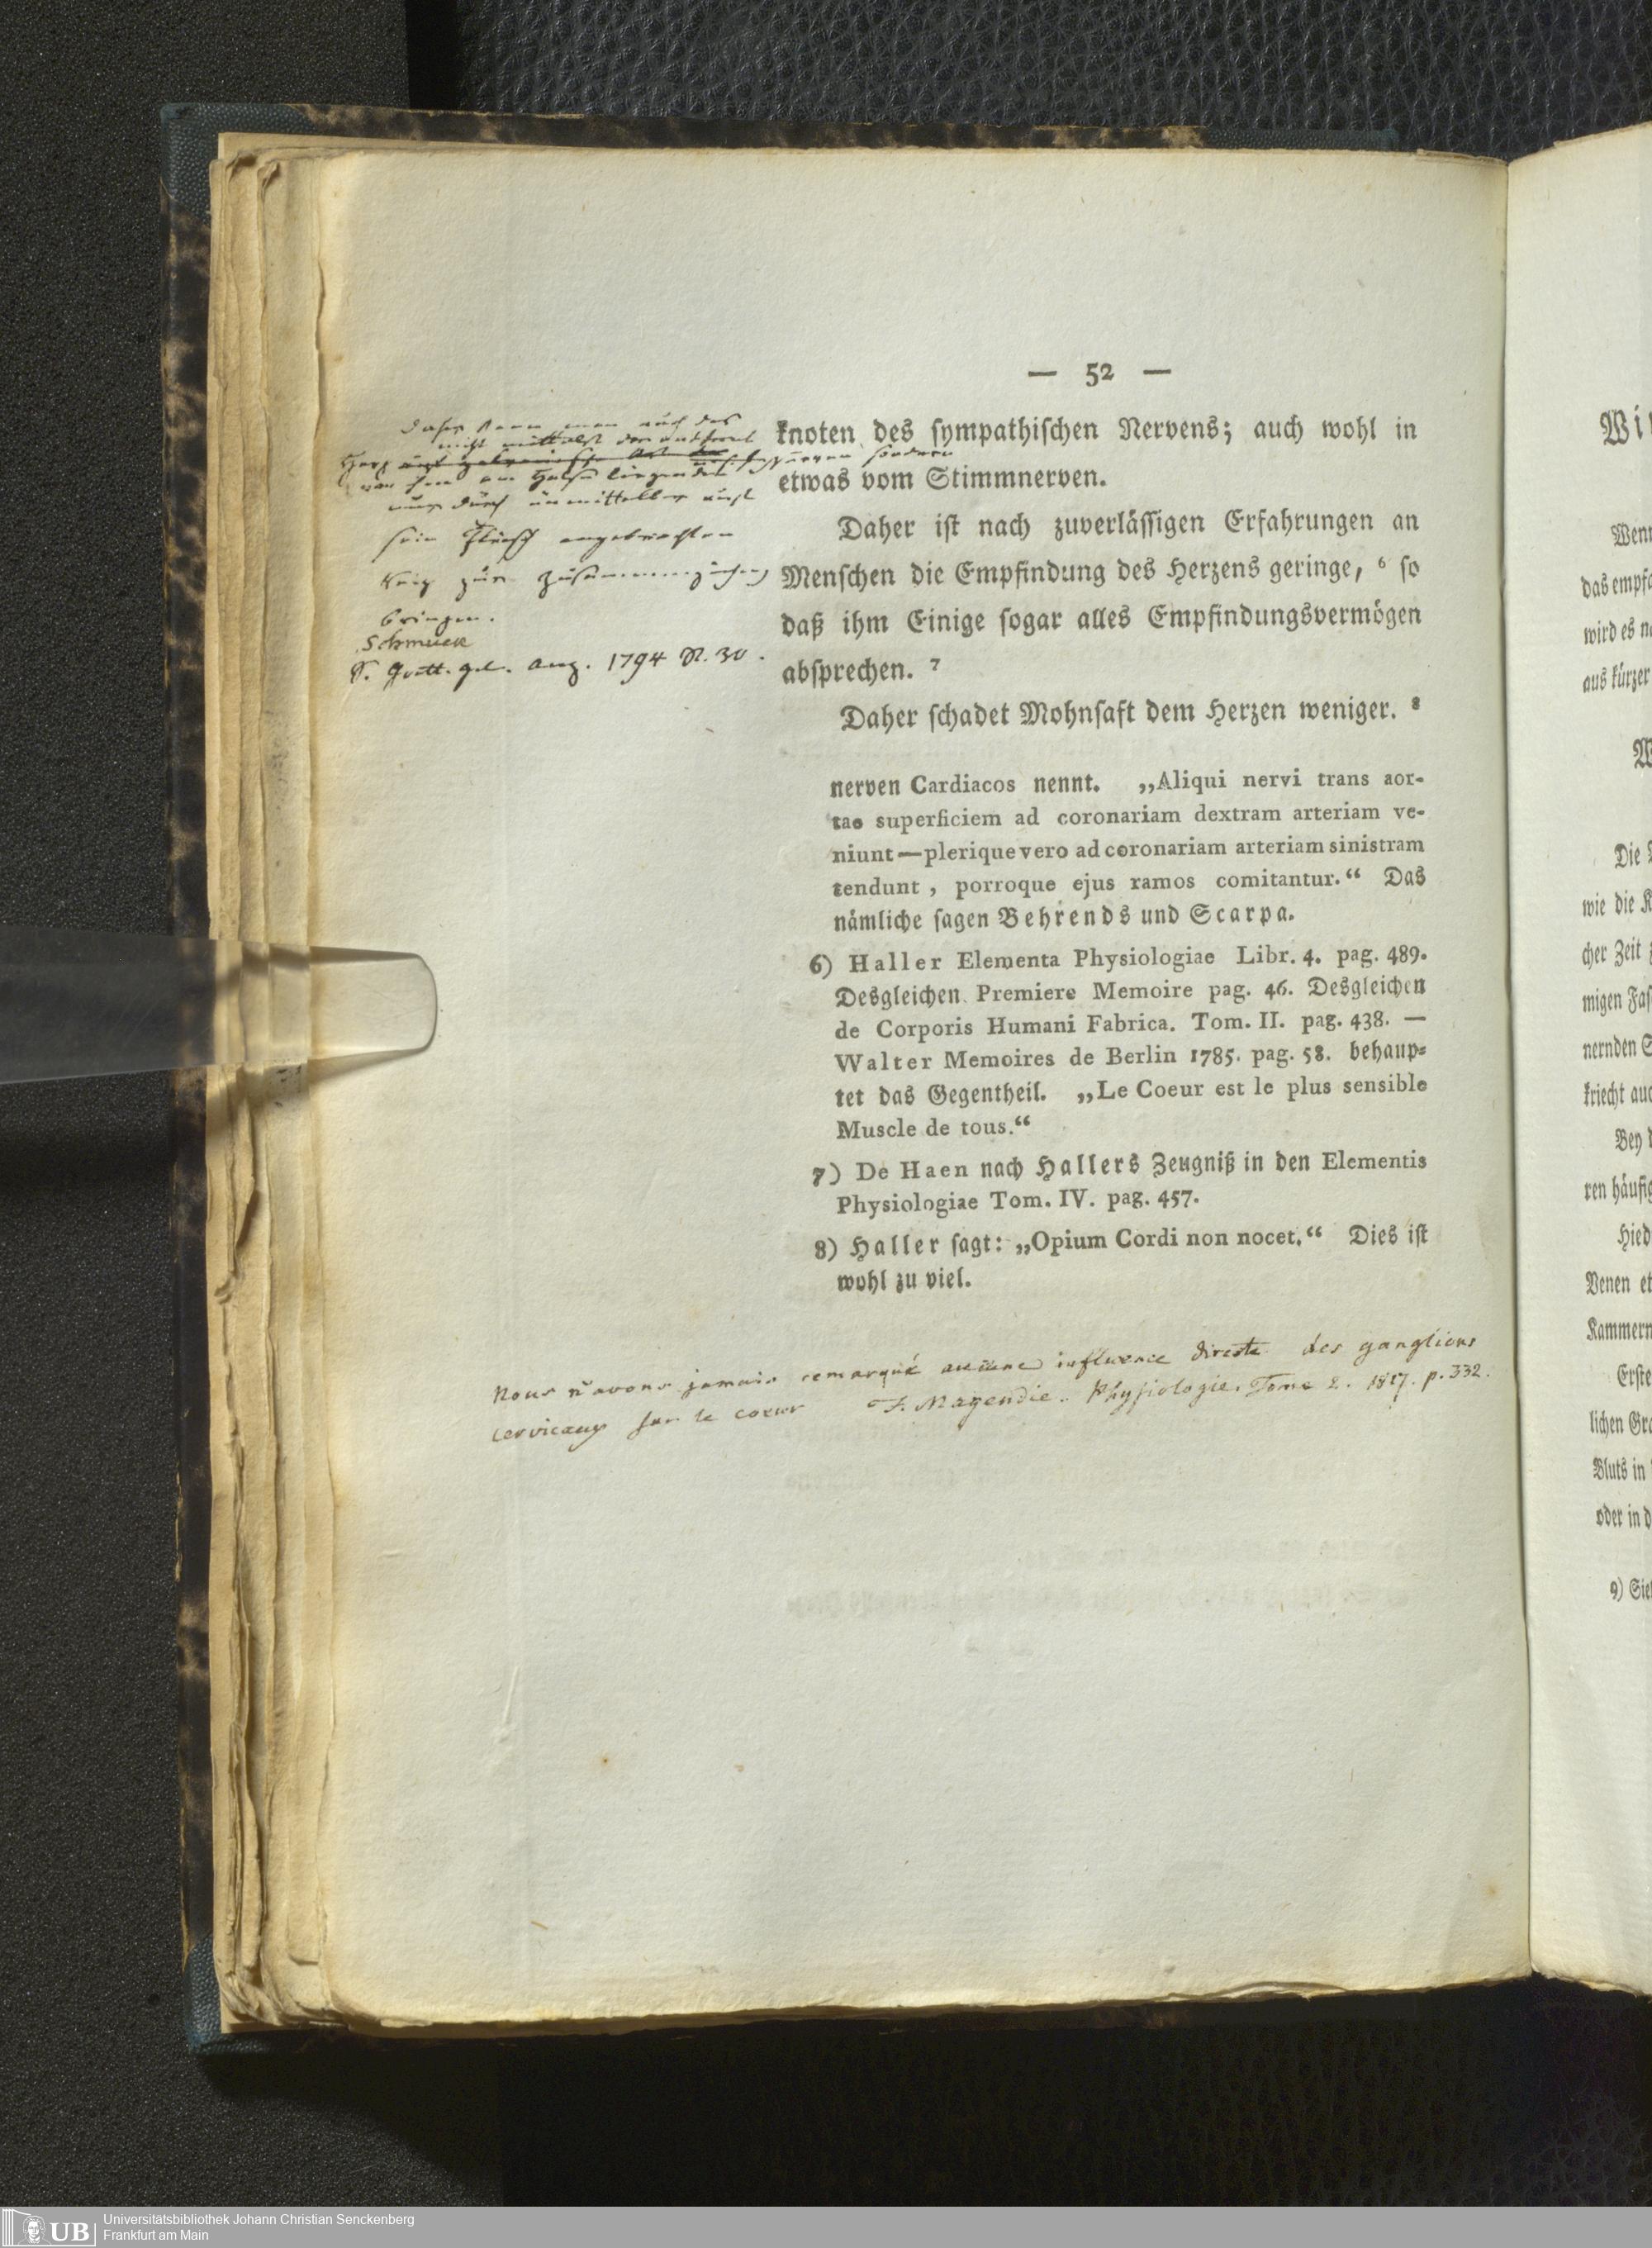 — 52 —
knoten des ſympathiſchen Nervens; auch wohl in
etwas vom Stimmnerven.
Daher iſt nach zuverläſſigen Erfahrungen an
Menſchen die Empfindung des Herzens geringe, ⁶ ſo
daß ihm Einige ſogar alles Empfindungsvermögen
abſprechen. ⁷
Daher ſchadet Mohnſaft dem Herzen weniger. ⁸
nerven Cardiacos nennt. „Aliqui nervi trans aor-
tae superficiem ad coronariam dextram arteriam ve-
niunt — plerique vero ad coronariam arteriam sinistram
tendunt, porroque ejus ramos comitantur.“ Das
nämliche ſagen Behrends und Scarpa.
6) Haller Elementa Physiologiae Libr. 4. pag. 489.
Desgleichen Premiere Memoire pag. 46. Desgleichen
de Corporis Humani Fabrica. Tom. II. pag. 438. —
Walter Memoires de Berlin 1785. pag. 58. behaup-
tet das Gegentheil. „Le Coeur est le plus sensible
Muscle de tous.“
7) De Haen nach Hallers Zeugniß in den Elementis
Physiologiae Tom. IV. pag. 457.
8) Haller ſagt: „Opium Cordi non nocet.“ Dies iſt
wohl zu viel.
Daher kann man auch das
nicht mittelst der entfernt
Herz
von ihm am Halse liegenden sondern
nur durch unmittelbar aufs
sein Fleisch angebrachten
Reiz zur Zusammenziehung
bringen.
Schmuck
S. Gött. gel. Anz. 1794 N. 30.
Nous n'avons jamais remarqué aucune influence directe des ganglions
cervicaux sur le coeur F. Magendie. Physiologie. Tome 2. 1817. p. 332.
Wi
Wenn
das empf
wird es n
aus kürzer
Die
wie die K
cher Zeit
migen Faſ
nernden S
kriecht auc
Bey
ren häufig
Hied
Venen et
Kammern
Erſte
lichen Gr
Bluts in
oder in d
9) Sie
UB
Universitätsbibliothek Johann Christian Senckenberg
Frankfurt am Main